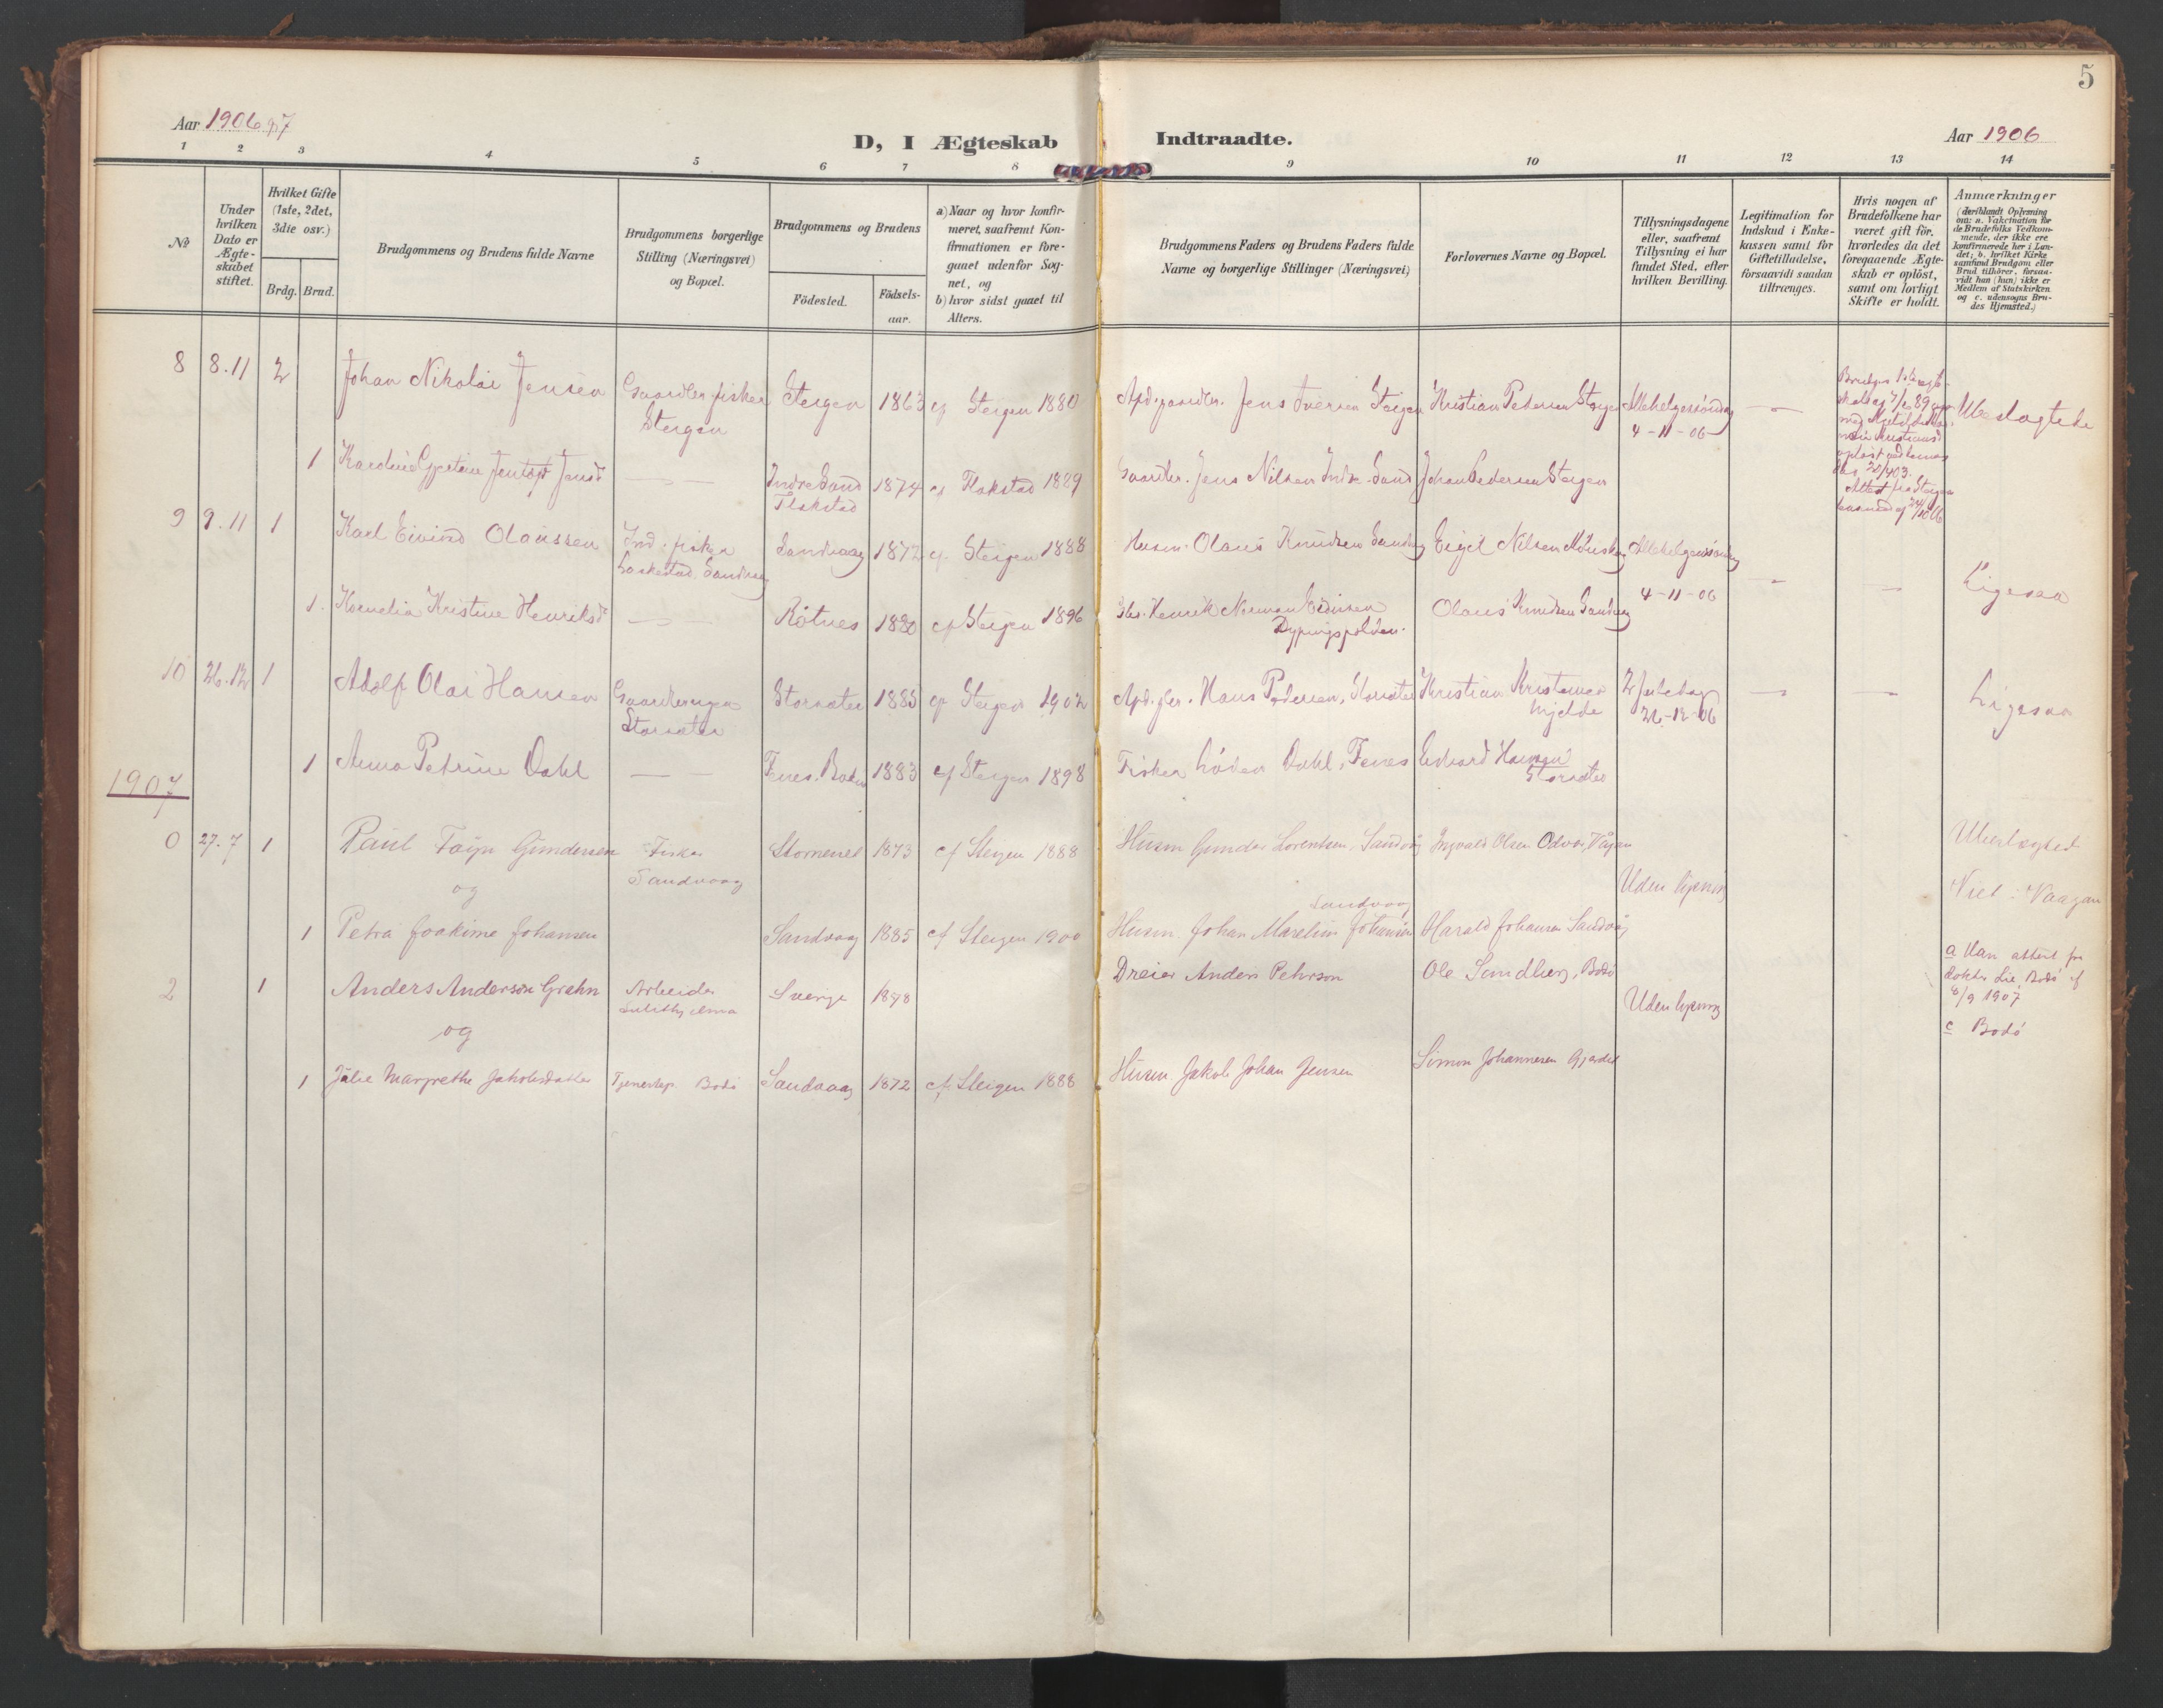 5
Aar 1906 og 7
D, I Ægteskab Indtraadte.
Aar 1906
1 2 3 4 5 6 7 8 9 10 11 12 13 14
No
Under hvilken Dato er Ægteskabet stiftet.
Hvilket Gifte (1ste, 2det, 3die osv.)
Brdg. Brud.
Brudgommens og Brudens fulde Navne
Brudgommens borgerlige Stilling (Næringsvei) og Bopæl.
Brudgommens og Brudens
Födested.
Födsels-aar.
a) Naar og hvor konfirmeret, saafremt Konfirmationen er foregaaet udenfor Sognet, og
b) hvor sidst gaaet til Alters.
Brudgommens Faders og Brudens Faders fulde Navne og borgerlige Stillinger (Næringsvei)
Forlovernes Navne og Bopæl.
Tillysningsdagene eller, saafremt Tillysning ei har fundet Sted, efter hvilken Bevilling.
Legitimation for Indskud i Enkekassen samt for Giftetilladelse, forsaavidt saadan tiltrænges.
Hvis nogen af Brudefolkene har været gift för, hvorledes da det foregaaende Ægteskab er oplöst, samt om lovligt Skifte er holdt.
Anmærkninger
(deriblandt Oplysning om: a. Vakcination for de Brudefolks Vedkommende, der ikke ere konfirmerede her i Landet; b. hvilket Kirkesamfund Brudgom eller Brud tilhörer, forsaavidt han (hun) ikke er Medlem af Statskirken og c. udensogns Brudes Hjemsted.)
8 8.11 2 Johan Nikolai Jensen Gaardbr fisker Steigen Steigen 1863 cf Steigen 1880 Jens Iversen Steigen Kristian Pedersen Steigen Allehelgensöndag 4-11-06 — Ubeslægtede
1 Jensd — — Indre Sand Flakstad 1874 cf Flakstad 1889 Gaardbr. Jens Nilsen Indre Sand Johan Pedersen Steigen
9 9.11 1 Karl Eivind Olaussen Ind. fisker Sandvaag 1872 cf Steigen 1888 Husm. Olaus Knudsen Sandvaag Nilsen Allehelgensöndag 4-11-06 — — Ligesaa
1. Kornelia Kristine Henriksd — — Rötnes 1880 cf Steigen 1896 Henrik Norman Olaus Knudsen Sandvaag
10 26.12 1 Adolf Olai Hansen Storsæter Storsæter 1883 cf Steigen 1902 Hans Pedersen, Storsæter Kristian Kristensen Mjelde 2 juledag 26-12-06 — — Ligesaa
1 Anna Petrine Dahl — — Fenes, Bodin 1883 cf Steigen 1898 Fisker Dahl, Fenes Edvard Hansen Storsæter
1907
0 27.7 1 Paul Gundersen Fisker Sandvaag 1873 cf Steigen 1888 Husm Gunder Lorentsen, Sandvåg Ingvald Olsen Odvær, Vågan Uden lysning Ubeslægted Viet i Vaagan
og
1 Petra Joakime Johansen Sandvaag 1885 cf Steigen 1900 Husm. Johan Johansen Sandvaag Harald Johansen Sandvåg
2 1 Anders Anderson Grehn Arbeider Sulithjelma Sverige 1878 Dreier Anders Pehrson Ole Sandberg, Bodö Uden lysning
a Han attest fra doktor Lie, Bodö af 8/9 1907
c Bodö
og
1 Julie Margrethe Jakobsdatter Bodö Sandvaag 1872 cf Steigen 1888 Husm. Jakob Johan Jensen Simon Johannesen